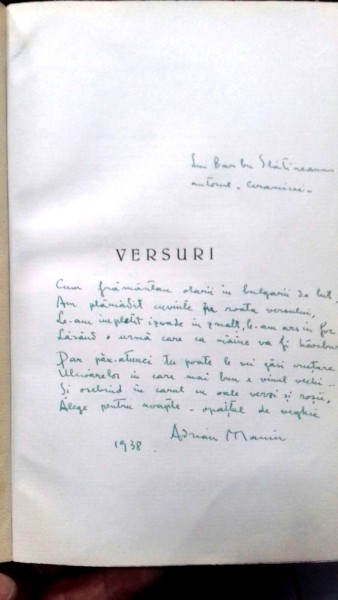 Lui Barbu Slătineanu
autorul "Ceramicei" -
VERSURI
Cum frământau olarii în bulgării de lut -
Am plămădit cuvinte pe roata versului,
Le-am împletit izvoade în zmalț, le-am ars în foc
Lăsând o urmă care ca mâine va fi hârburi
Dar păn-atunci tu poate le vei găsi crutare
Ulcioarelor în care mai bun e vinul vechi -
Și osebind în carul cu oale verzi și roșii,
Alege pentru noapte - opaițul de veghie
1938. Adrian Maniu